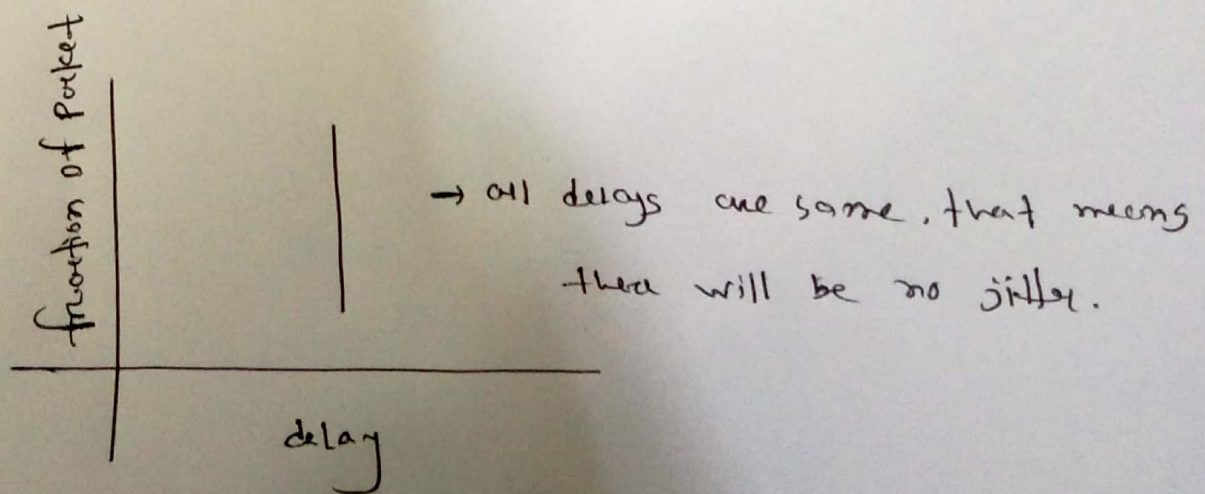 fraction of Packet
→ all delays are same, that means
there will be no jitter.
delay